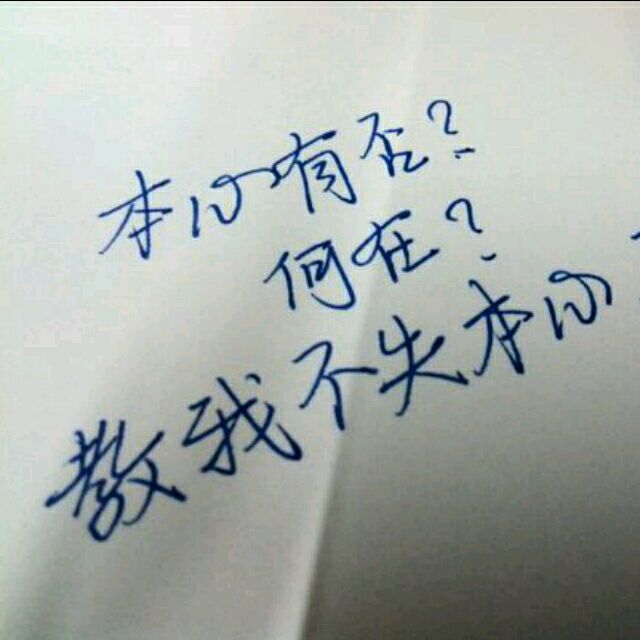 本心有否?
何在?
教我不失本心